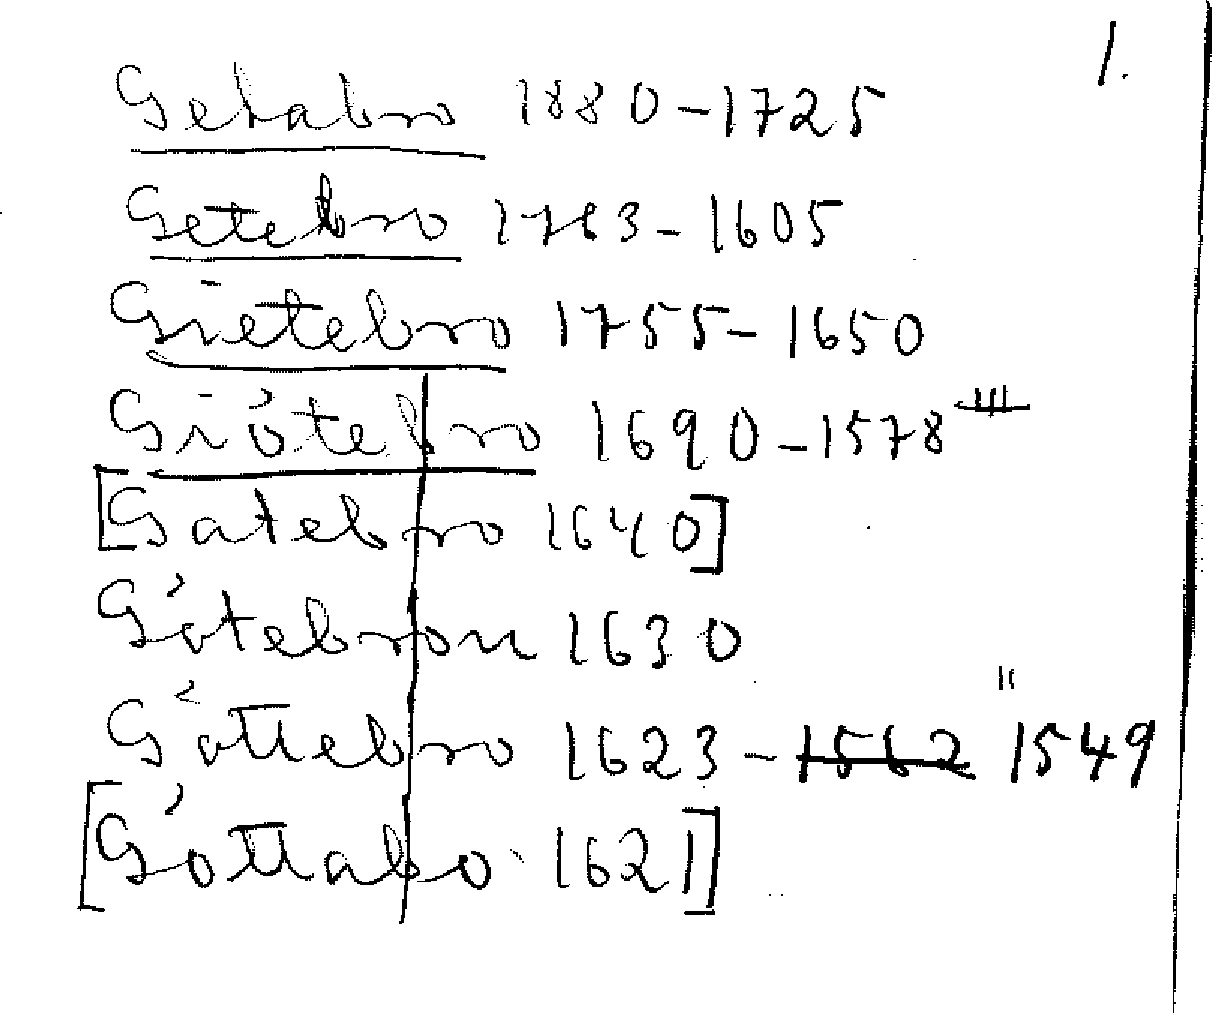 1.
Getabro 1880-1725
Getebro 1763-1605
Gietebro 1755-1650
Giötebro 1690-1578
[Gatebro 1640]
Götebron 1630
Göttebro 1623-1562 1549
[Göttabo 1621]